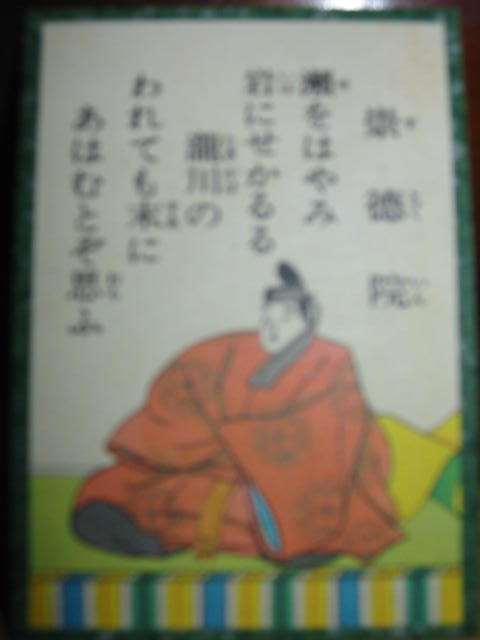 崇徳院
瀬をはやみ
岩にせかるる
瀧川の
われても末に
あはむとぞ思ふ